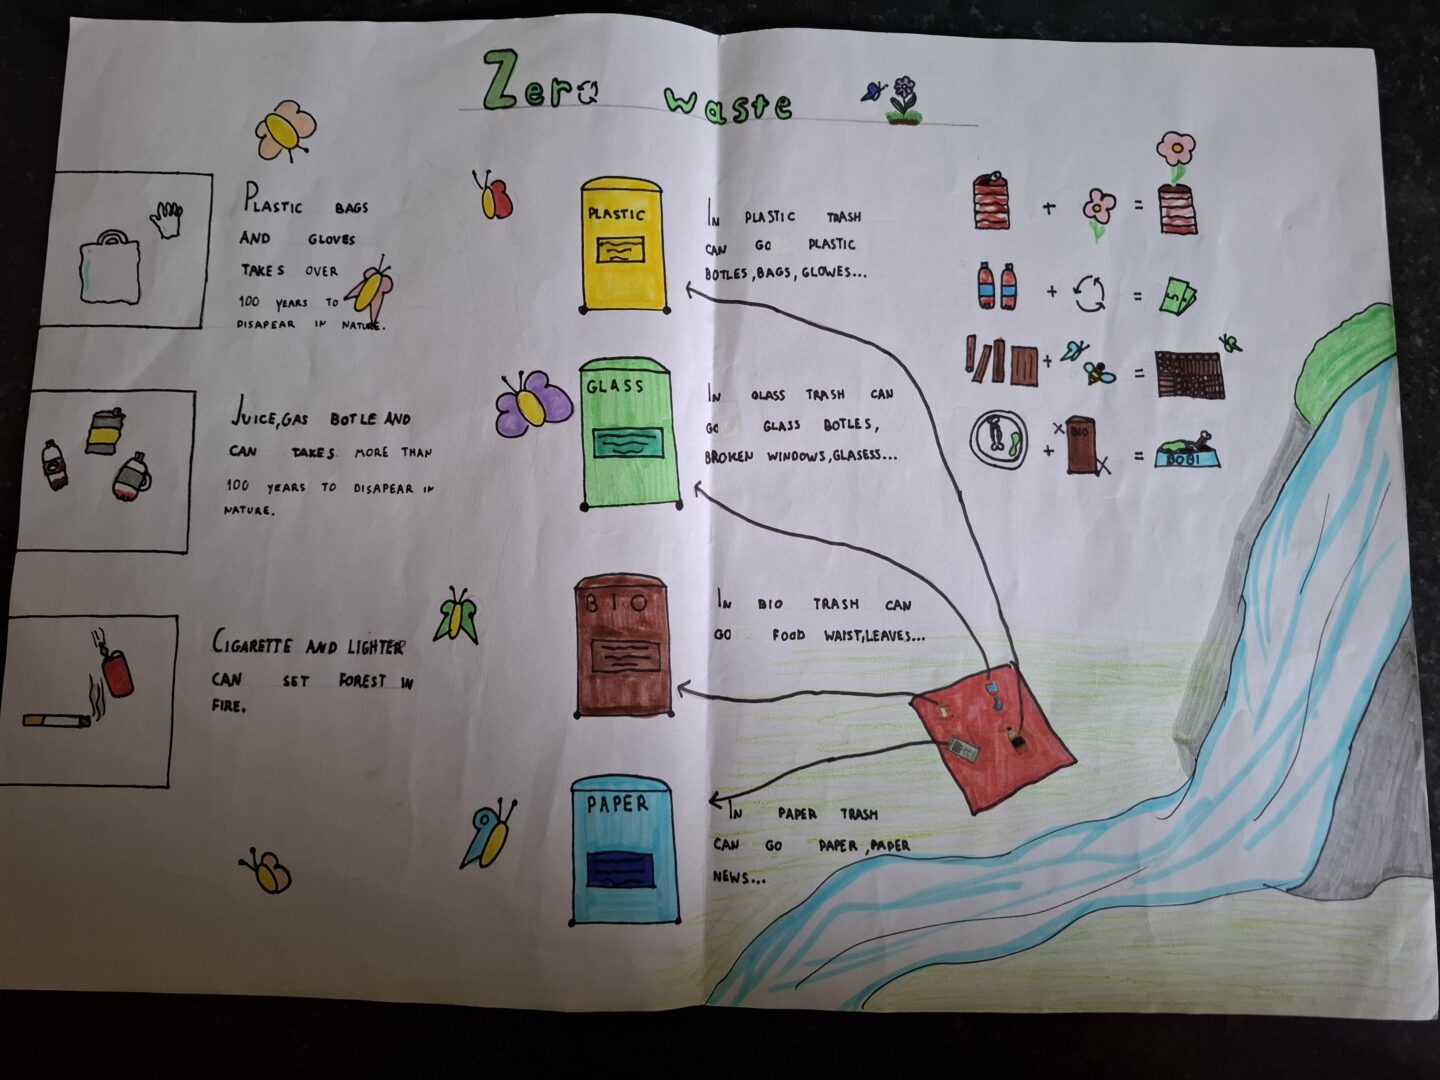 Zero waste
PLASTIC BAGS
AND GLOVES
TAKES OVER
100 YEARS TO
DISAPEAR IN NATURE.
JUICE,GAS BOTLE AND
CAN TAKES MORE THAN
100 YEARS TO DISAPEAR IN
NATURE.
CIGARETTE AND LIGHTER
CAN SET FOREST IN
FIRE.
PLASTIC
IN PLASTIC TRASH
CAN GO PLASTIC
BOTLES,BAGS,GLOWES...
GLASS
IN GLASS TRASH CAN
GO GLASS BOTLES,
BROKEN WINDOWS,GLASESS...
BIO
IN BIO TRASH CAN
GO FOOD WAIST,LEAVES...
PAPER
IN PAPER TRASH
CAN GO PAPER,PAPER
NEWS...
+ =
+ =
+ =
+ BIO =
BOBI